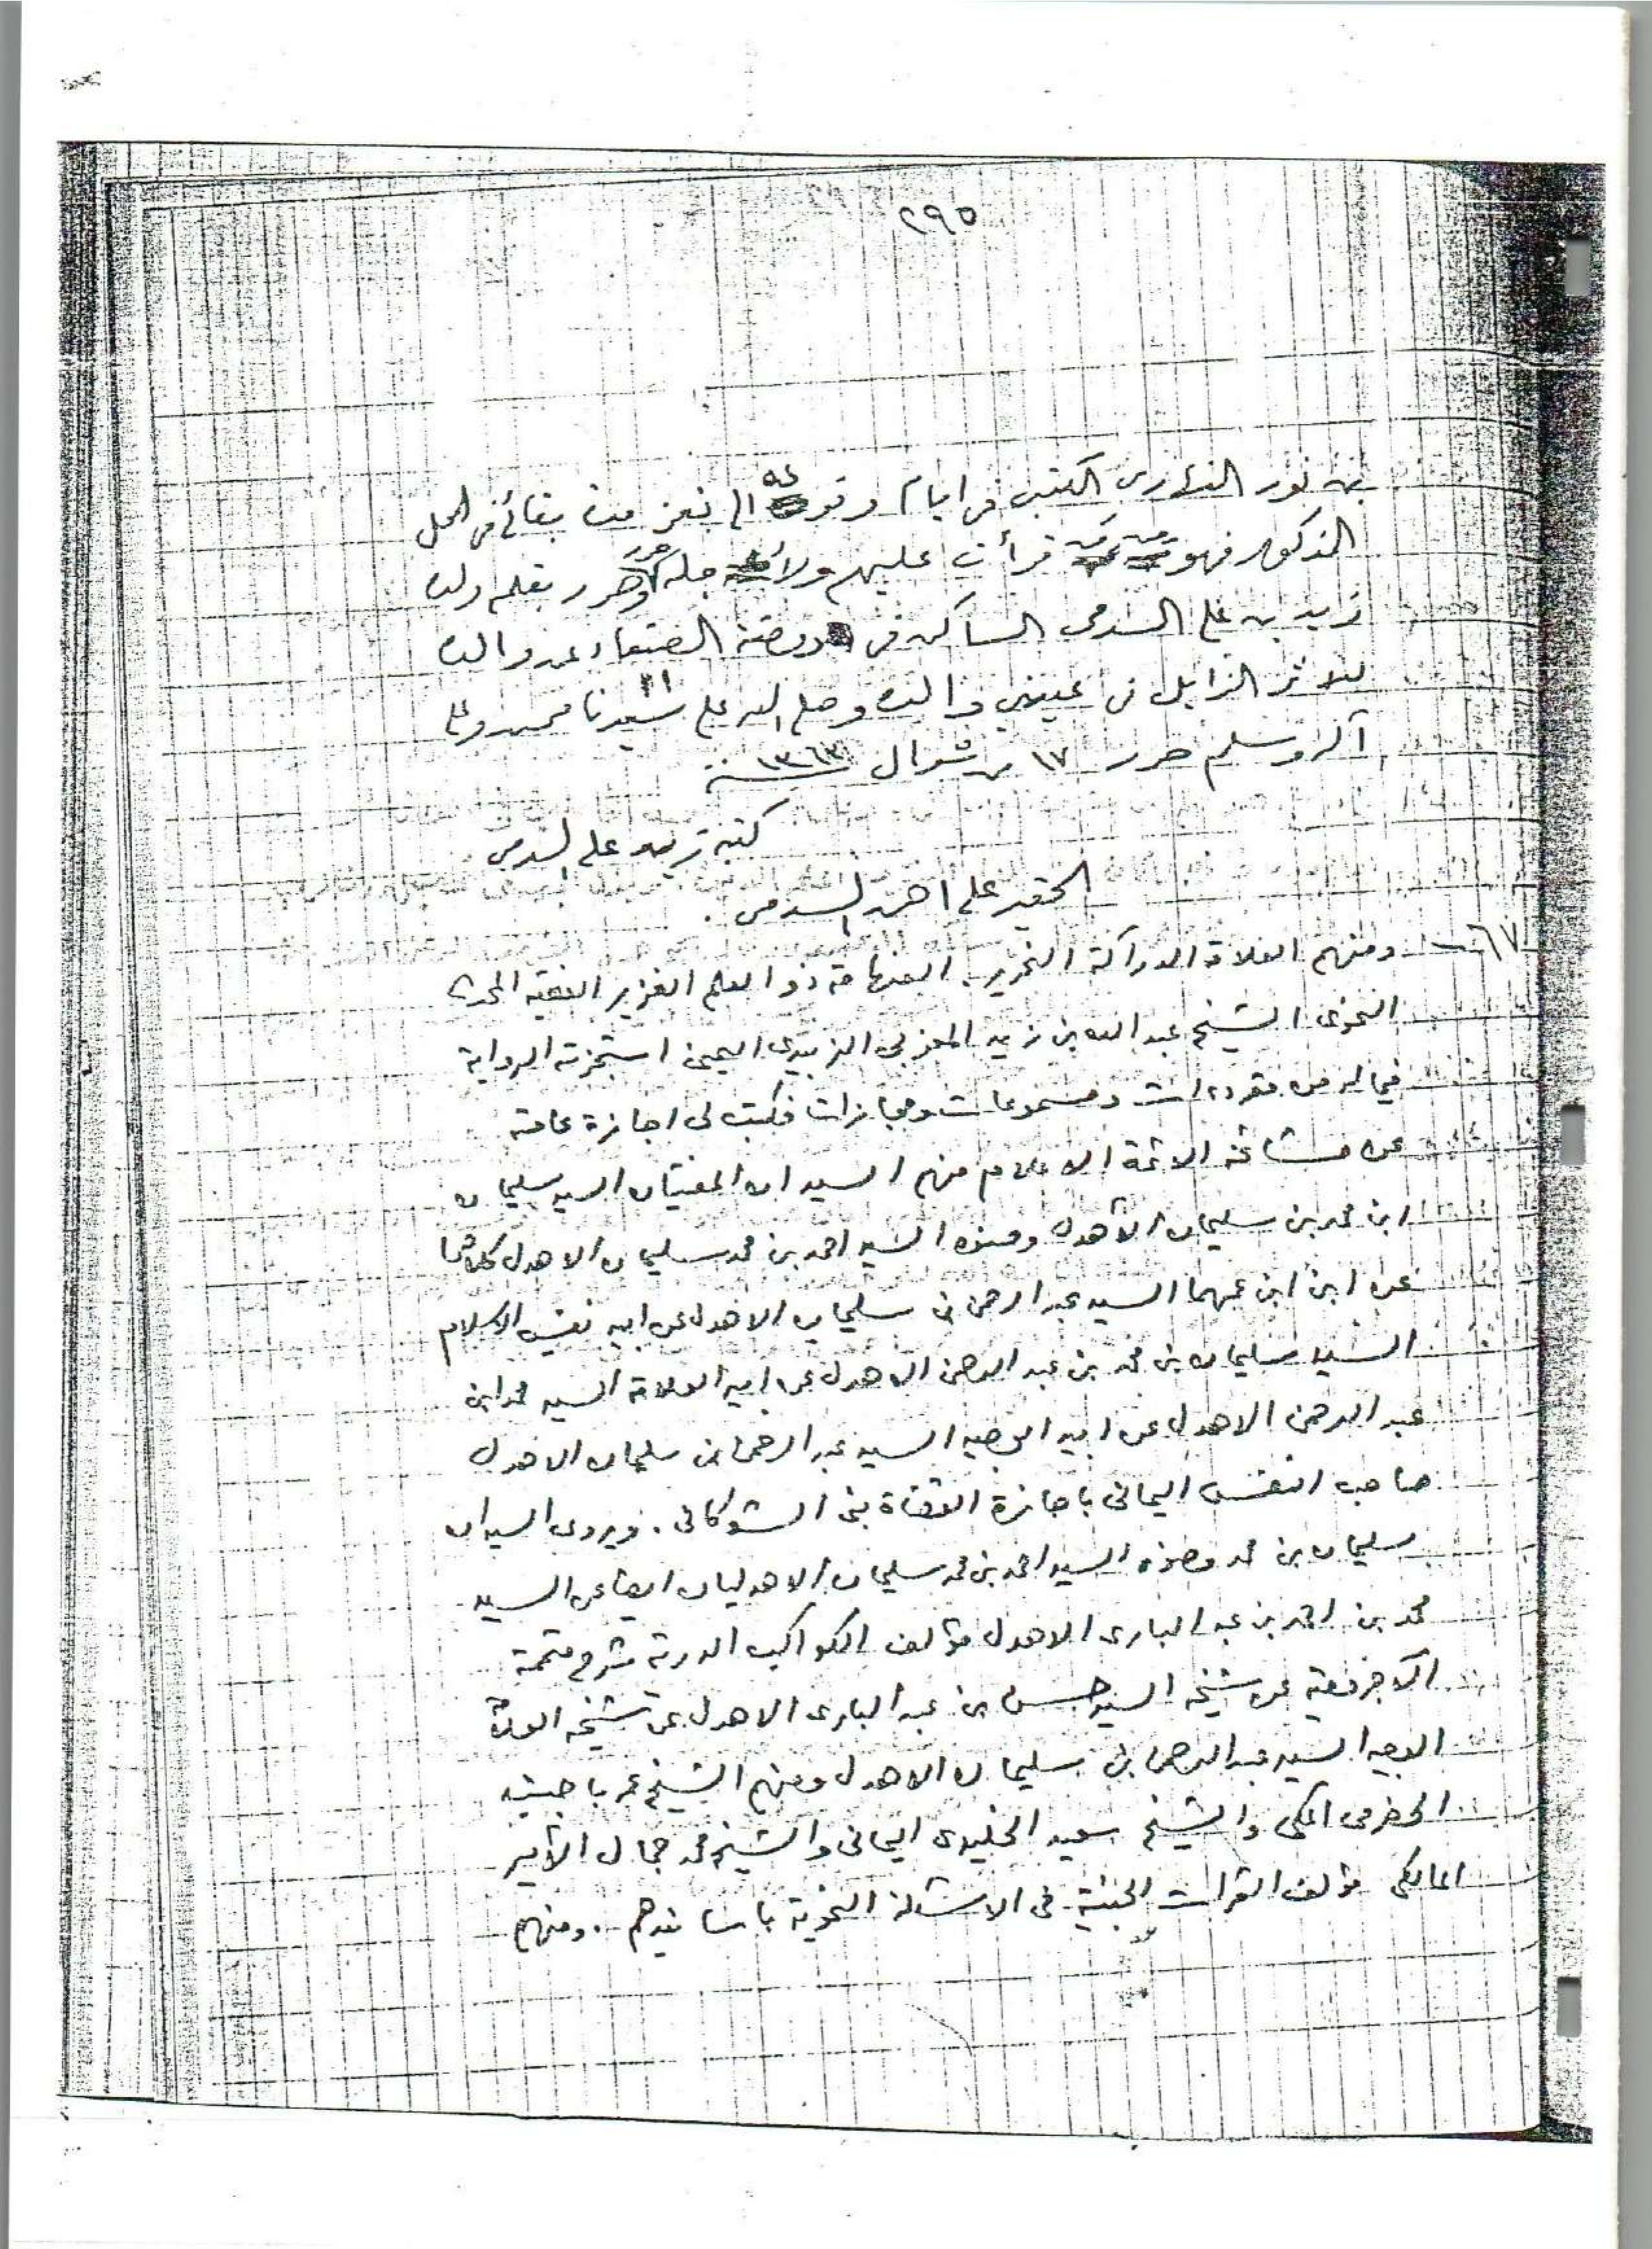 ٢٩٥
بن نور النهاري الكتبي في ايام وقوعه الى تعز مدت بقائي في المحل
المذكور فهو قرأت عليهم ولا جله وحرر بقلم ولده
زيد بن علي السدمي الساكن في روضة الصنعاء عن والده
للاثر النازل في عيني والده وصلى الله على سيدنا محمد وعلى
آله وسلم حرر ١٧ من شوال سنة ١٣٦٣
كتبه زيد علي السدمي
الحقير علي احمد السدمي .
٦٧ - ومنهم العلامة الدراكة النحرير الفهامة ذو العلم الغزير الفقيه المحدث
النحوي الشيخ عبد الله بن زيد المعزبي الزبيدي اليمني استجزته الرواية
فيما له من مقروءات ومسموعات ومجازات فكتب لي اجازة عامة
عن مشائخه الائمة الاعلام منهم السيدان المفتيان السيد سليمان
ابن محمد بن سليمان الأهدل وصنوه السيد احمد بن محمد سليمان الاهدل كلاهما
عن ابن ابن عمهما السيد عبد الرحمن بن سليمان الاهدل عن ابيه نفيس الاسلام
السيد سليمان بن محمد بن عبد الرحمن الاهدل عن ابيه العلامة السيد محمد ابن
عبد الرحمن الاهدل عن ابيه الوجيه السيد عبد الرحمن بن سليمان الاهدل
صاحب النفس اليماني باجازة القضاة بني الشوكاني . ويروي السيدان
سليمان بن محمد وصنوه السيد احمد بن محمد سليمان الاهدليان ايضا عن السيد
محمد بن احمد بن عبد الباري الاهدل مؤلف الكواكب الدرية شرح متممة
الآجرومية عن شيخه السيد حسن بن عبد الباري الاهدل عن شيخه العلامة
الوجيه السيد عبد الرحمن بن سليمان الاهدل ومنهم الشيخ عمر باجنيد
الحضرمي المكي والشيخ سعيد الخليدي اليماني والشيخ محمد جمال الأمير
المالكي مؤلف الثمرات الجنية في الاسئلة النحوية باسانيدهم . ومنهم